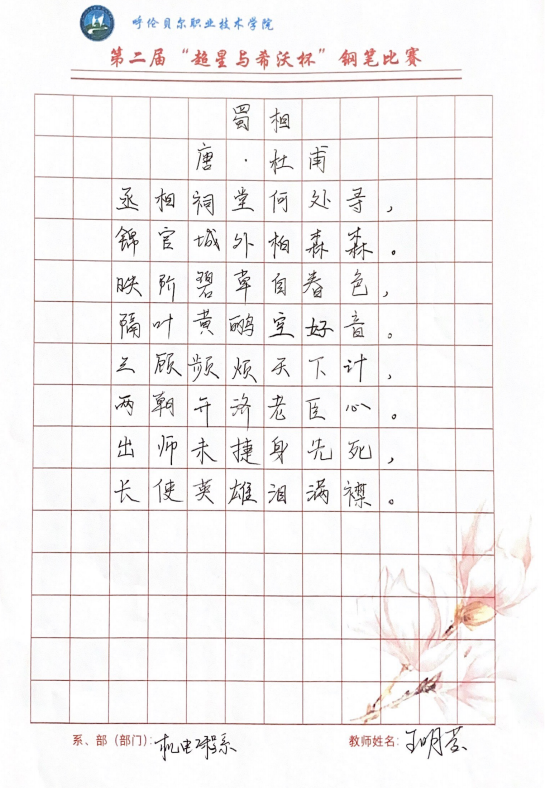 呼伦贝尔职业技术学院
第二届“超星与希沃杯”钢笔比赛
蜀相
唐·杜甫
丞相祠堂何处寻，
锦官城外柏森森。
映阶碧草自春色，
隔叶黄鹂空好音。
三顾频烦天下计，
两朝开济老臣心。
出师未捷身先死，
长使英雄泪满襟。
系、部（部门）：机电工程系 教师姓名：王明芸